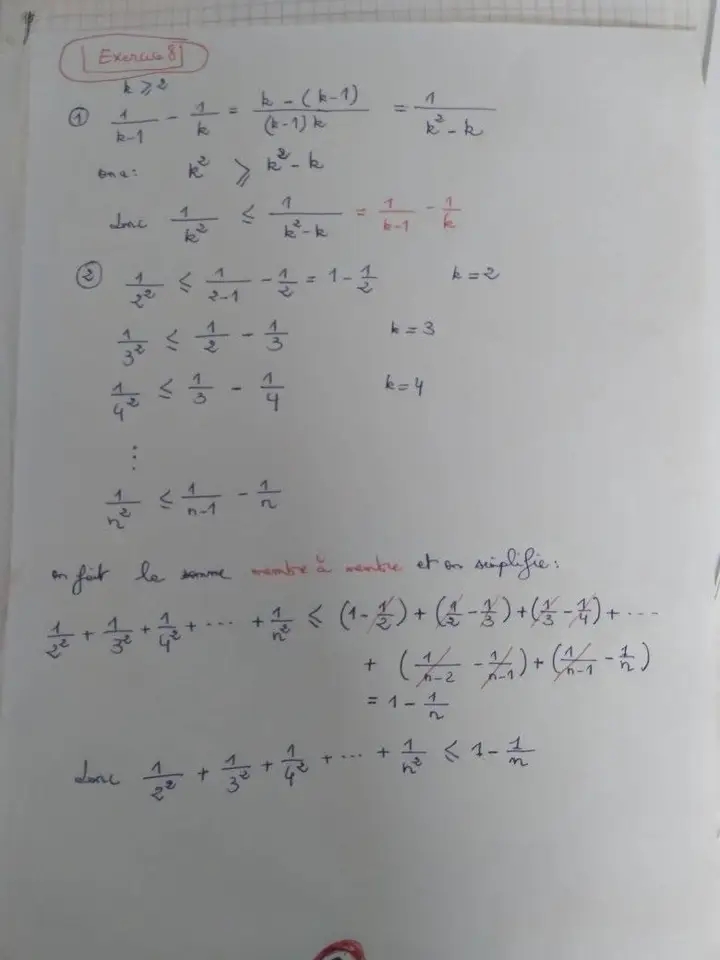 Exercice 8
k ⩾ 2
① 1/(k-1) - 1/k = (k - (k-1))/((k-1)k) = 1/(k² - k)
on a : k² ⩾ k² - k
donc 1/k² ≤ 1/(k² - k) = 1/(k-1) - 1/k
② 1/2² ≤ 1/(2-1) - 1/2 = 1 - 1/2 k = 2
1/3² ≤ 1/2 - 1/3 k = 3
1/4² ≤ 1/3 - 1/4 k = 4
⋮
1/n² ≤ 1/(n-1) - 1/n
on fait la somme membre à membre et on simplifie :
1/2² + 1/3² + 1/4² + ... + 1/n² ≤ (1 - 1/2) + (1/2 - 1/3) + (1/3 - 1/4) + ...
+ (1/(n-2) - 1/(n-1)) + (1/(n-1) - 1/n)
= 1 - 1/n
donc 1/2² + 1/3² + 1/4² + ... + 1/n² ≤ 1 - 1/n